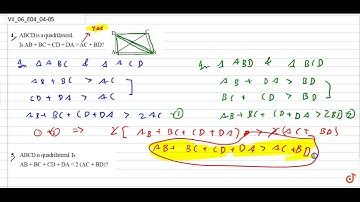 VII_06_E04_04-05
4. ABCD is a quadrilateral. Yes
Is AB + BC + CD + DA > AC + BD?
D C
A B
In △ABC & △ACD In △ABD & △BCD
AB + BC > AC AB + DA > BD
CD + DA > AC BC + CD > BD
AB + BC + CD + DA > 2AC — ① AB + BC + CD + DA > 2BD — ②
① + ② ⇒ 2[AB + BC + CD + DA] > 2(AC + BD)
AB + BC + CD + DA > AC + BD
5. ABCD is quadrilateral. Is
AB + BC + CD + DA < 2 (AC + BD)?